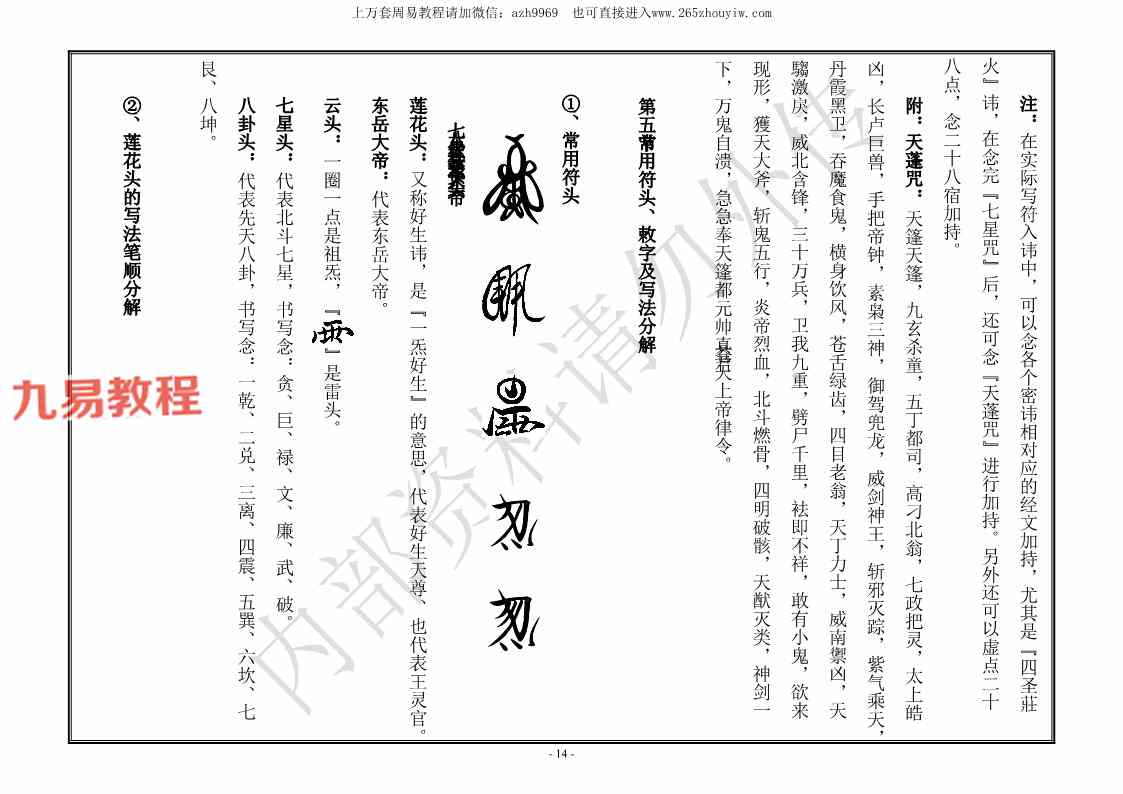 上万套周易教程请加微信：azh9969　也可直接进入www.265zhouyiw.com
注：在实际写符入讳中，可以念各个密讳相对应的经文加持，尤其是『四圣莊
火』讳，在念完『七星咒』后，还可念『天蓬咒』进行加持。另外还可以虚点二十
八点，念二十八宿加持。
附：天蓬咒：天篷天篷，九玄杀童，五丁都司，高刁北翁，七政把灵，太上皓
凶，长卢巨兽，手把帝钟，素枭三神，御驾兜龙，威剑神王，斩邪灭踪，紫气乘天，
丹霞黑卫，吞魔食鬼，横身饮风，苍舌绿齿，四目老翁，天丁力士，威南禦凶，天
騶激戾，威北含锋，三十万兵，卫我九重，劈尸千里，袪即不祥，敢有小鬼，欲来
现形，獲天大斧，斩鬼五行，炎帝烈血，北斗燃骨，四明破骸，天猷灭类，神剑一
下，万鬼自溃，急急奉天篷都元帅真君天上帝律令。
第五常用符头、敕字及写法分解
①、常用符头
莲花头：又称好生讳，是『一炁好生』的意思，代表好生天尊、也代表王灵官。
东岳大帝：代表东岳大帝。
云头：一圈一点是祖炁，『』是雷头。
七星头：代表北斗七星，书写念：贪、巨、禄、文、廉、武、破。
八卦头：代表先天八卦，书写念：一乾、二兑、三离、四震、五巽、六坎、七
艮、八坤。
②、莲花头的写法笔顺分解
内部资料请勿外传
九易教程
- 14 -